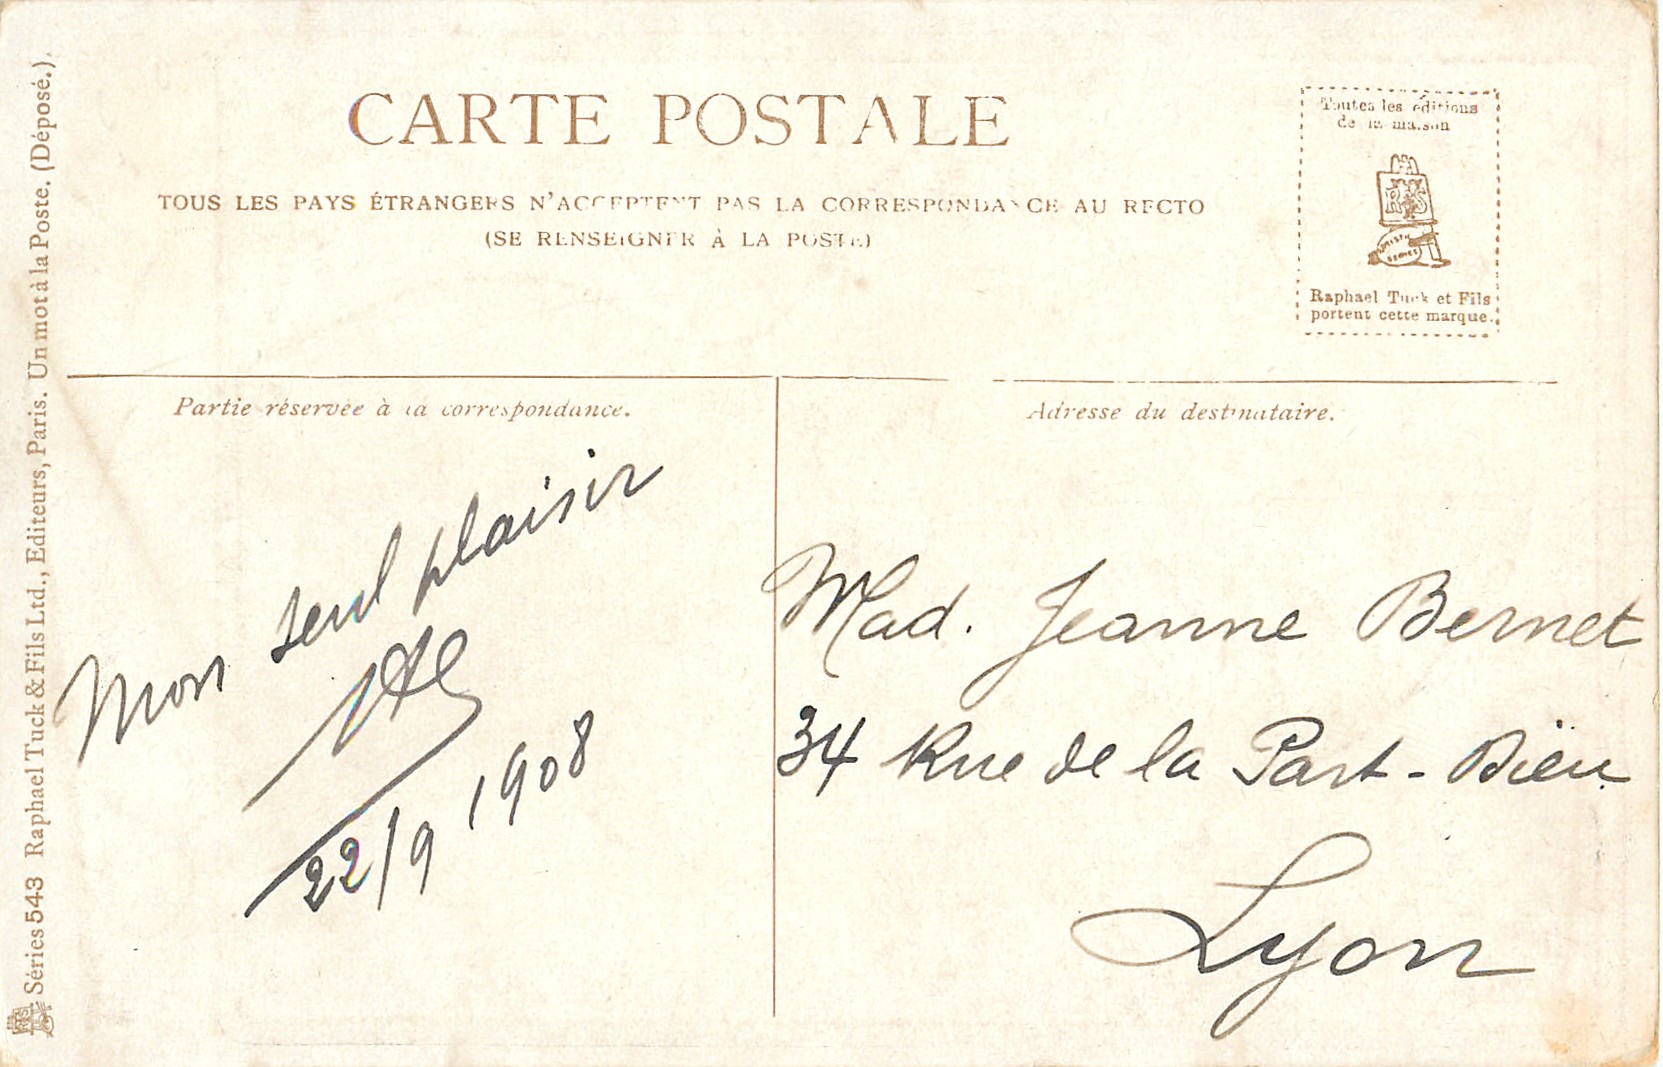 CARTE POSTALE
TOUS LES PAYS ÉTRANGERS N'ACCEPTENT PAS LA CORRESPONDANCE AU RECTO
(SE RENSEIGNER À LA POSTE.)
Toutes les éditions
de la maison
ARTISTIC
SERIES
Raphael Tuck et Fils
portent cette marque.
Partie réservée à la correspondance.
Adresse du destinataire.
Mon seul plaisir
22/9 1908
Mad. Jeanne Bernet
34 Rue de la Part-Dieu
Lyon
Séries 543 Raphael Tuck & Fils Ltd., Editeurs, Paris. Un mot à la Poste. (Déposé.)